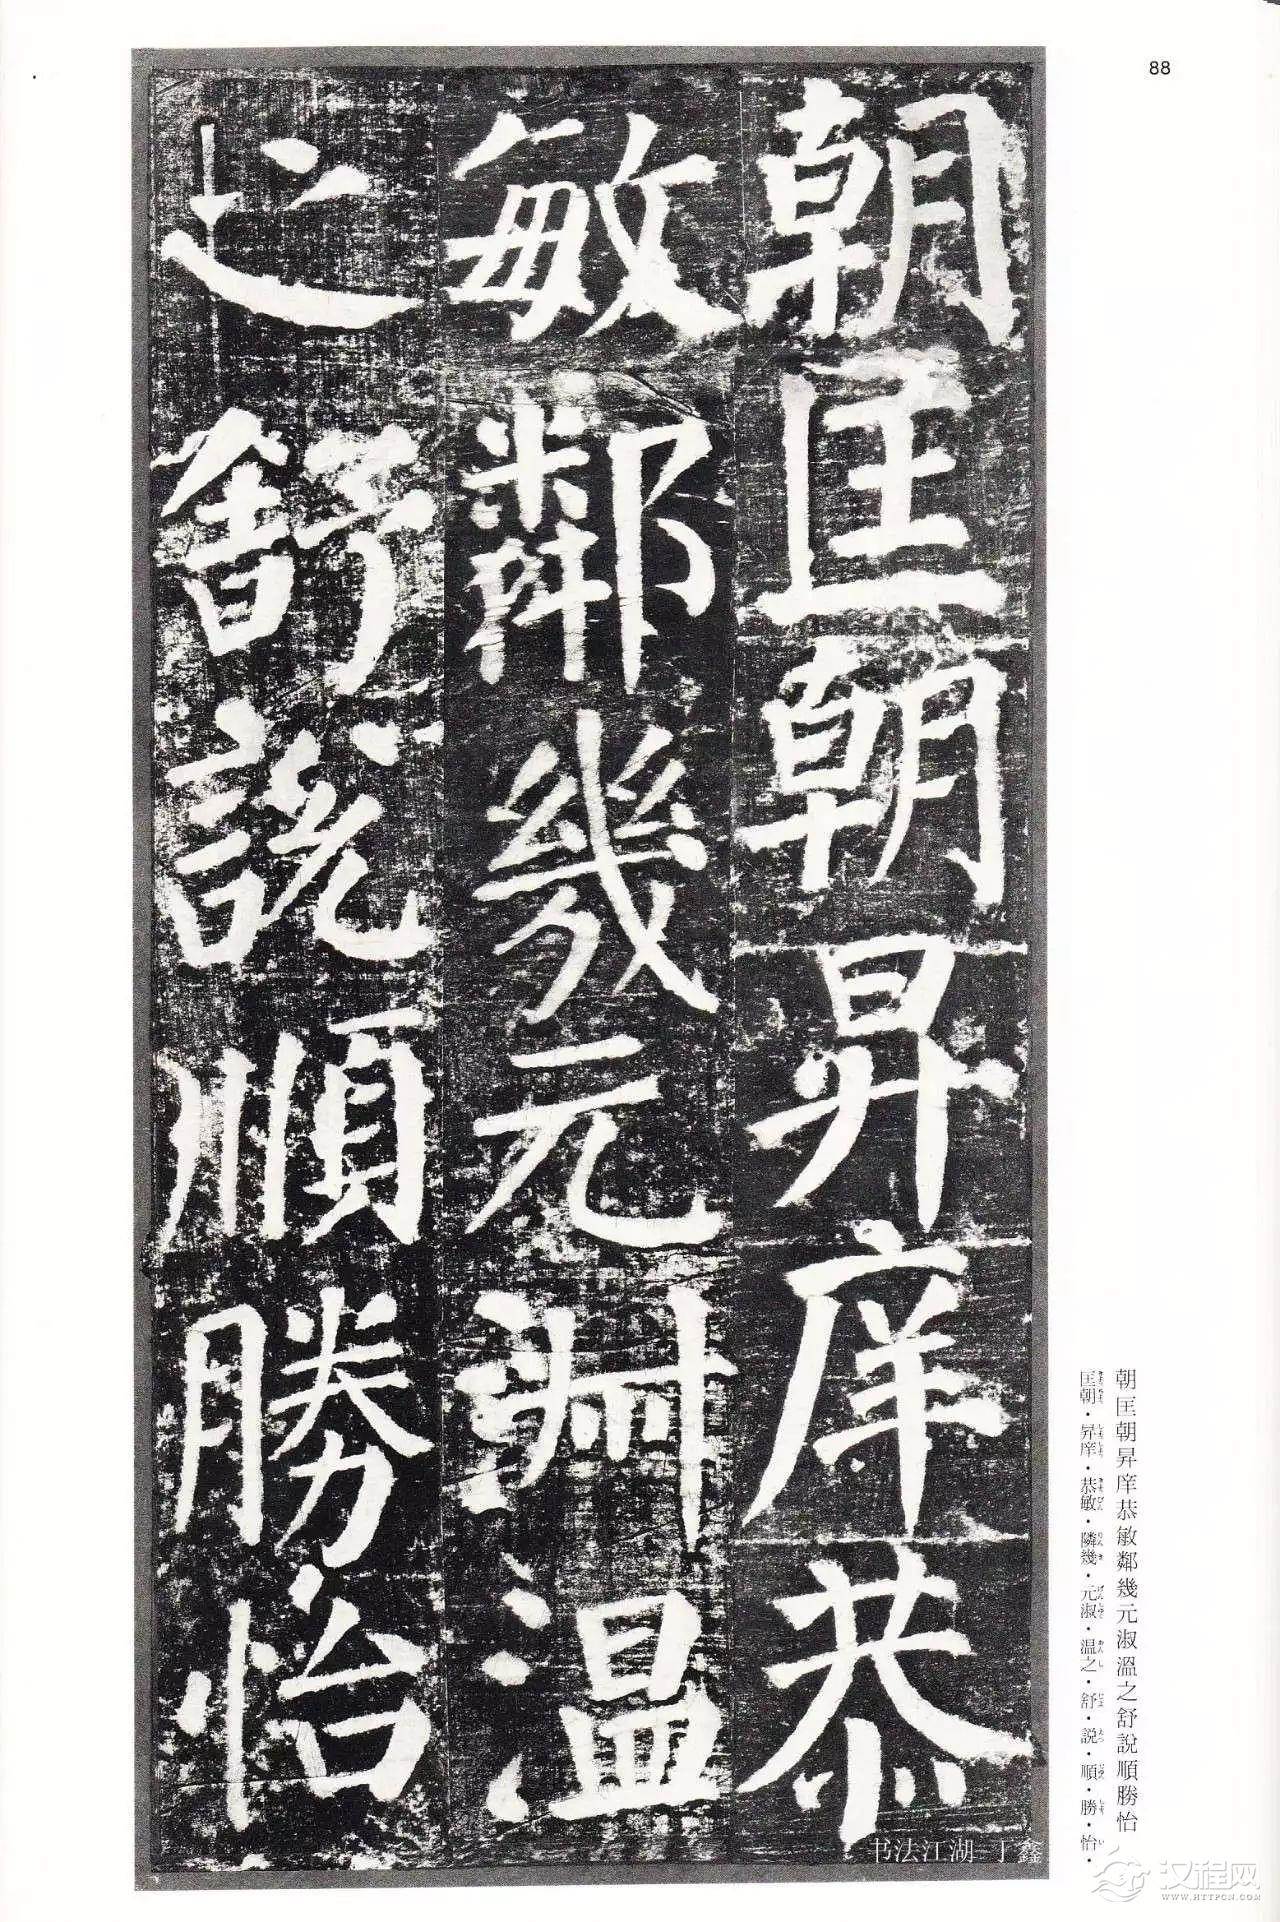 88
朝匡朝昇庠恭
敏鄰幾元淑溫
之舒說順勝怡
朝匡朝昇庠恭敏鄰幾元淑溫之舒說順勝怡
匡朝・昇庠・恭敏・隣幾・元淑・温之・舒・説・順・勝・怡・
书法江湖 丁鑫
汉程网
WWW.HTTPCN.COM